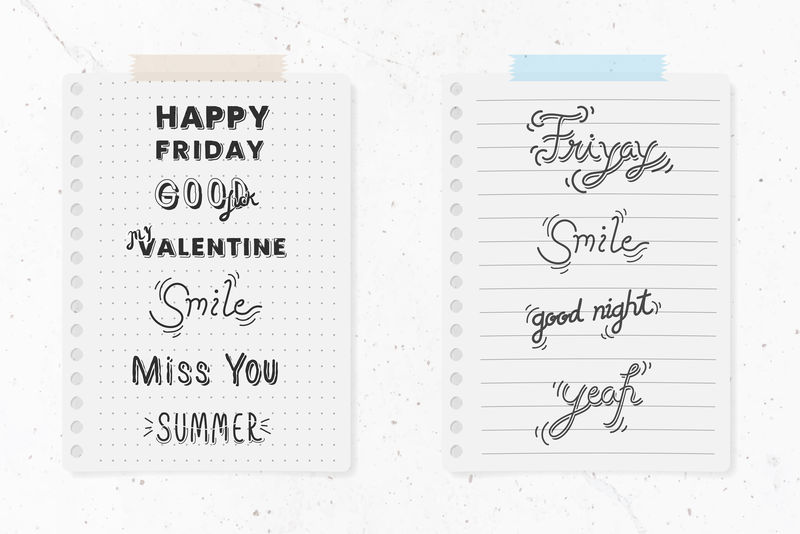 HAPPY
FRIDAY
GOOD luck
my VALENTINE
Smile
Miss You
SUMMER
Friyay
Smile
good night
yeah